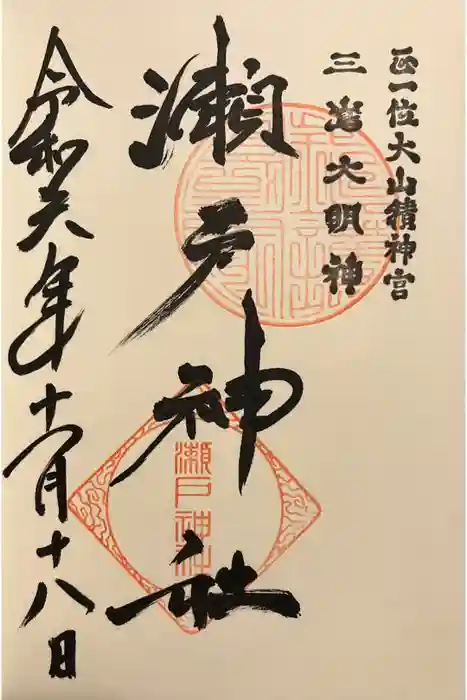 正一位大山積神宮
三嶌大明神
瀬戸神社
瀬戸神社
令和元年十一月十八日